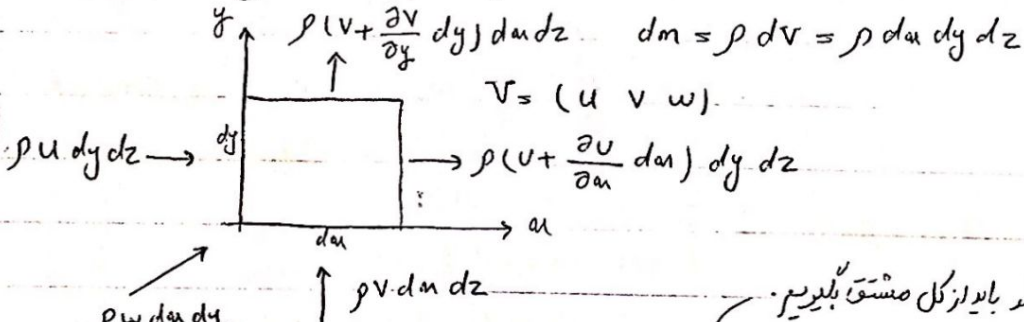 y ρ(v + ∂v/∂y dy) dx dz dm = ρ dV = ρ dx dy dz
V = (u v w).
ρ u dy dz → dy → ρ(u + ∂u/∂x dx) dy dz
dx x
ρ v dx dz باید از کل مشتق بگیریم.
ρ w dx dy